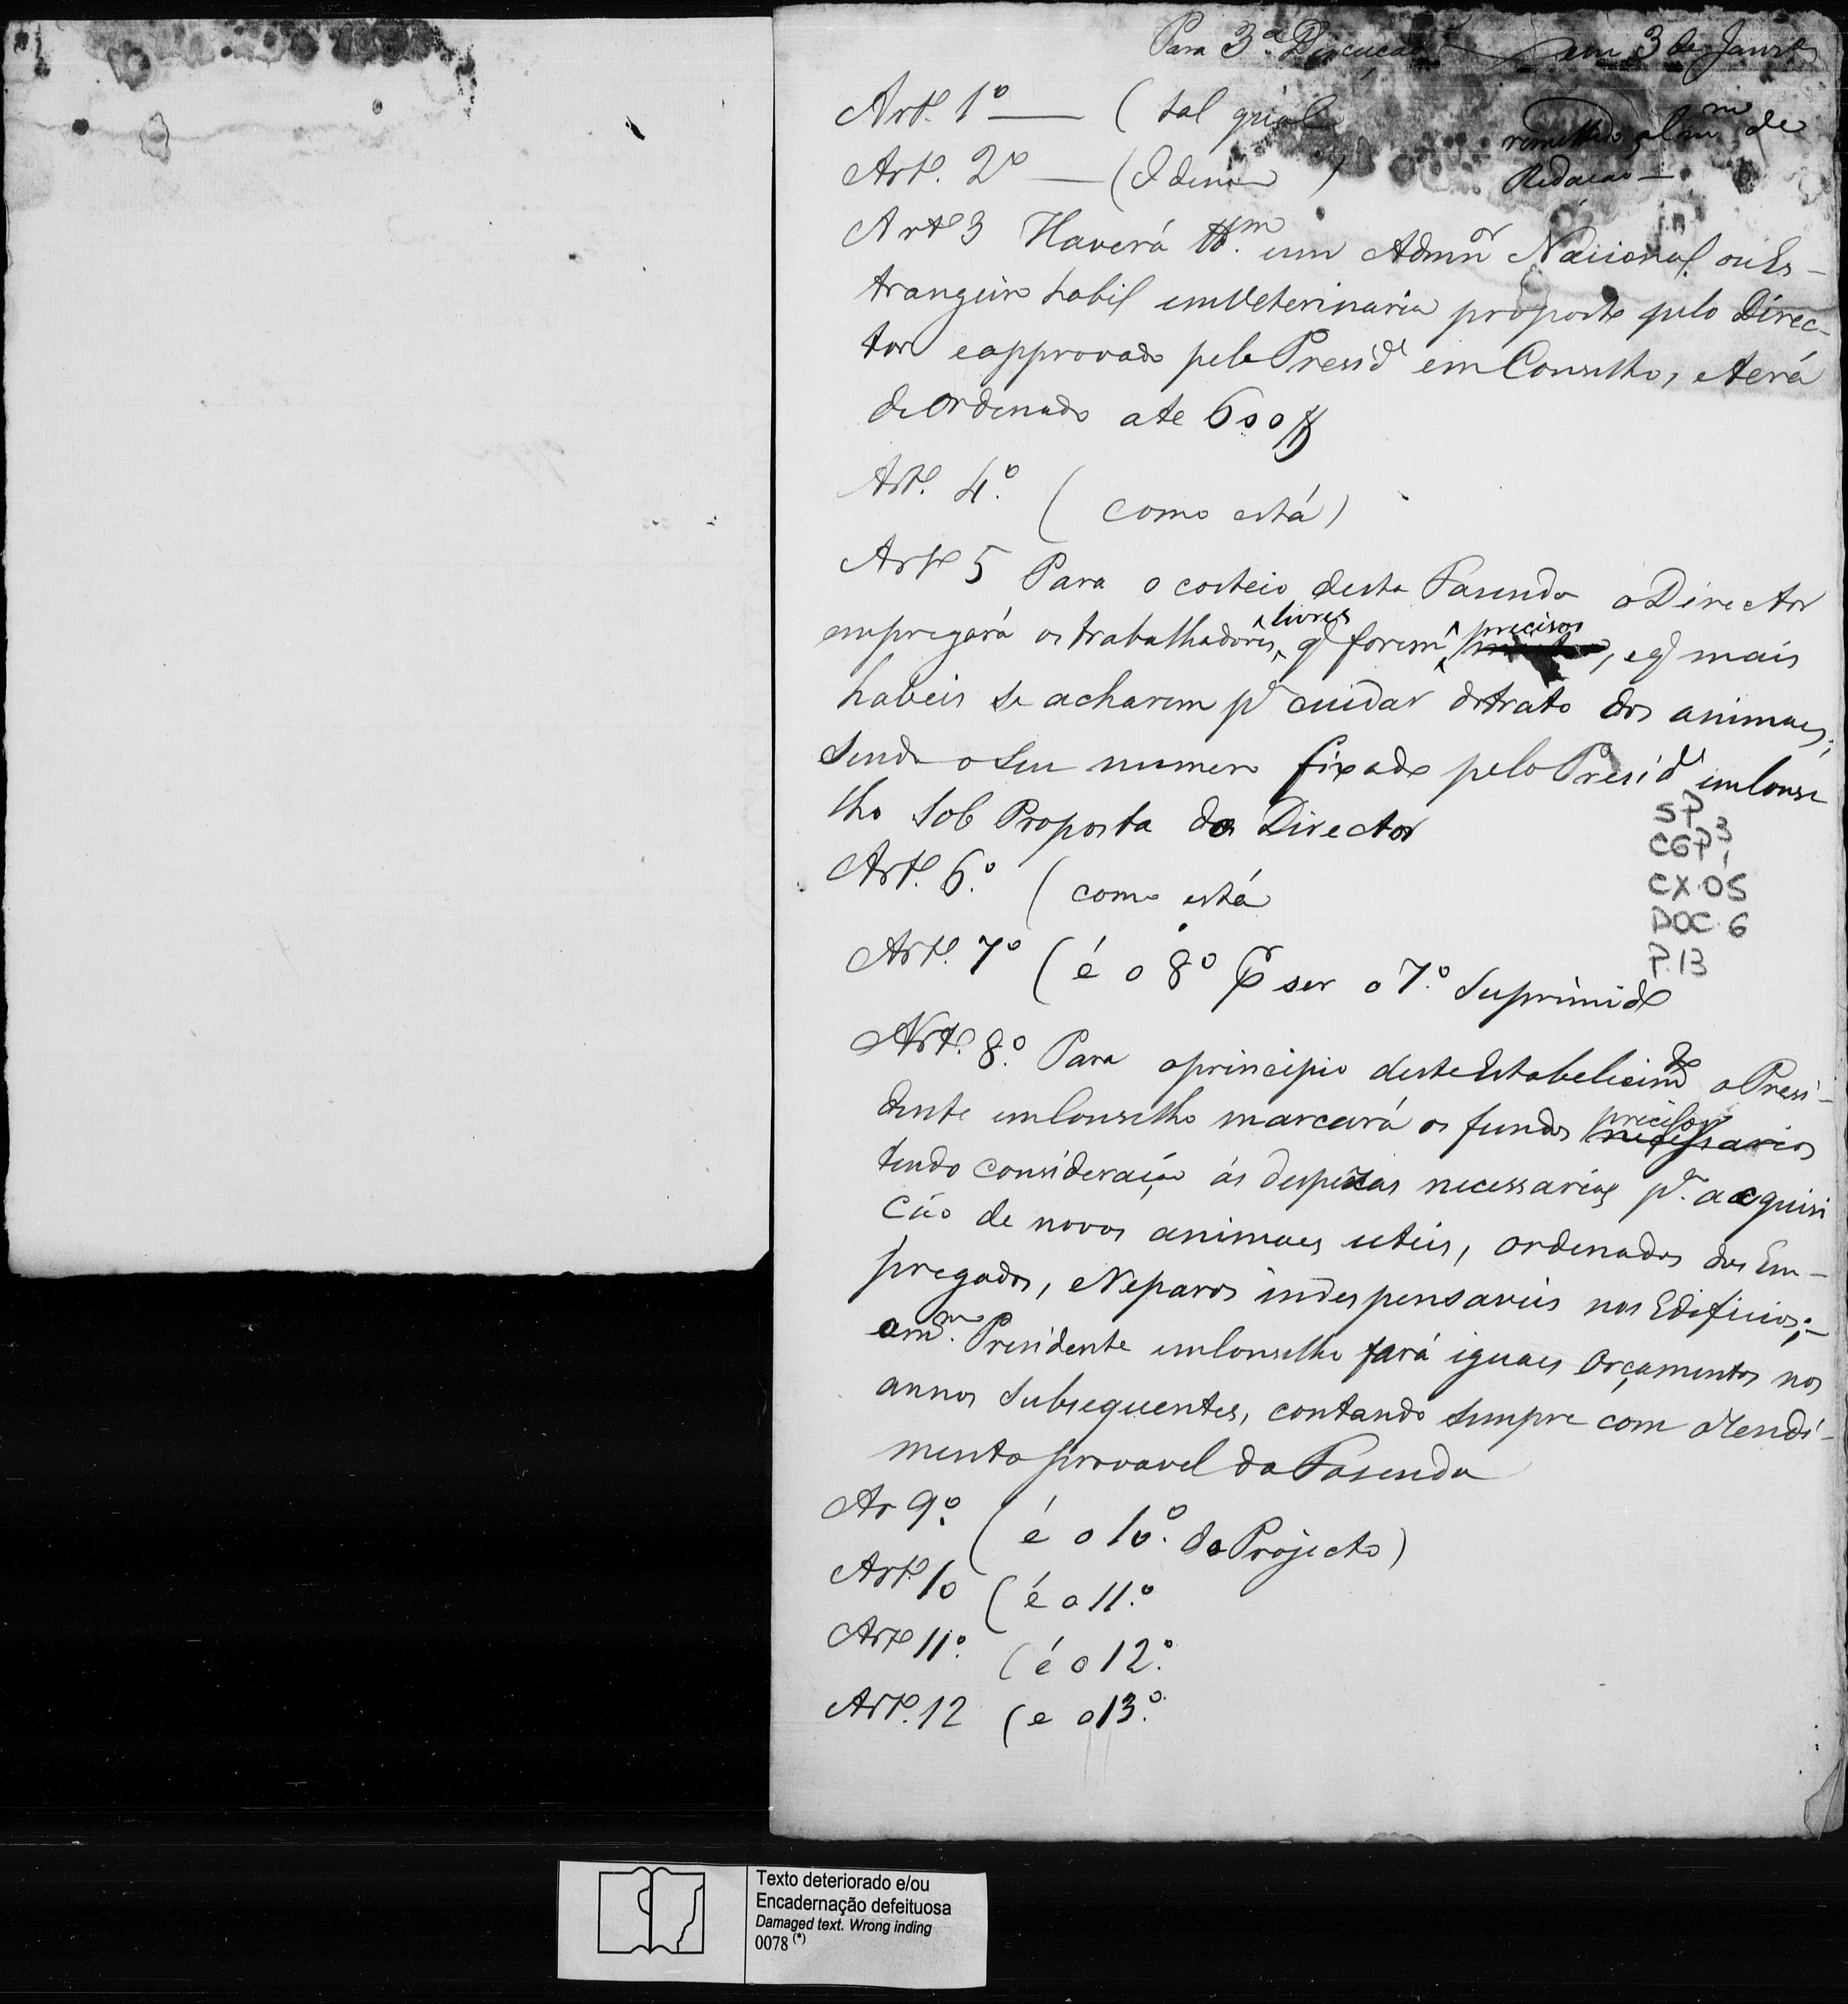 Para 3.ª Discução em 3 de Janrº
Art.º 1º — (tal qual
remettido á Comm de
Art.º 2º — (Idem)
Redacao —
Artº 3 Haverá tb.m um Admor Nacional ou Es-
trangeiro habil em Veterinaria proposto pelo Direc-
tor e approvado pelo Presid.e em Conselho, e terá
de Ordenado ate 600$
Art.º 4.º (como está)
Artº 5 Para o costeio desta Fasenda o Director
livres
precisos
empregará os trabalhadores, q forem, e q mais
habeis se acharem pª cuidar do trato dos animaes;
sendo o seu numero fixado pelo Presid.e em Conse
lho sob Proposta do Director
SP
CGP3,
CX.05
DOC.6
P.13
Art.º 6.º (como está
Art.º 7º (é o 8º pr ser o 7.º suprimido
Art.º 8.º Para o principio deste Estabelicimto o Presi-
precisos
dente em Conselho marcará os fundos necessarios
tendo consideração ás despezas necessarias pª. a acquisi
ção de novos animaes uteis, ordenados dos Em-
pregados, e Reparos indespensaveis nos Edificios; -
o mm.º Presidente em Conselho fará iguaes Orçamentos nos
annos subsequentes, contando sempre com o rendi-
mento provavel da Fasenda
Ar 9.º (é o 10.º do Projecto)
Artº 10 (é o 11.º
Artº 11.º (é o 12.º
Art.º 12 (e o 13.º
Texto deteriorado e/ou
Encadernação defeituosa
Damaged text. Wrong inding
0078 (*)